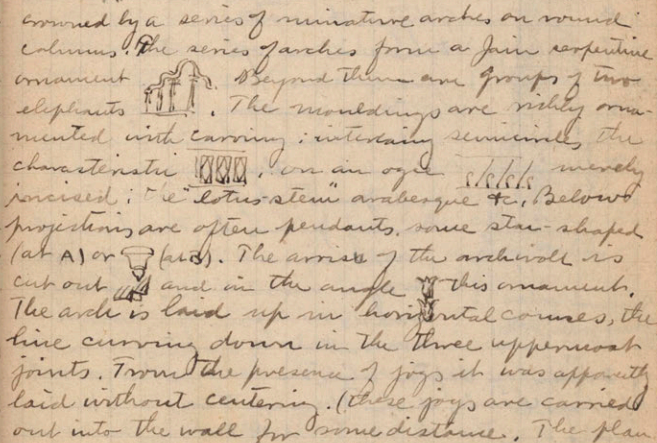 crowned by a series of miniature arches on round
columns. The series of arches form a Jain serpentine
ornament . Beyond them are groups of two
elephants . The mouldings are richly orna-
mented with carving; interlacing semicircles, the
characteristic , on an ogee merely
incised; the "lotus-stem" arabesque &c. Below
projections are often pendants, some star-shaped
(at A) or (at B). The arris of the archivolt is
cut out and in the angle this ornament.
The arch is laid up in horizontal courses, the
line curving down in the three uppermost
joints. From the presence of jogs it was apparently
laid without centering. (These jogs are carried
out into the wall for some distance. The plan